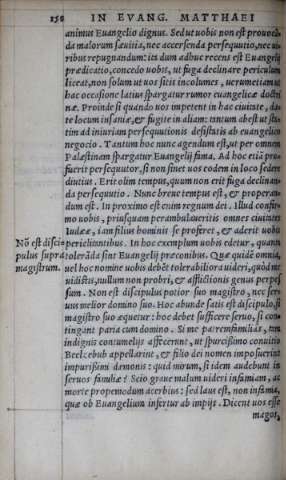 158 IN EVANG. MATTHAEI
animus Euangelio dignus. Sed ut uobis non est prouocā
da malorum sæuitia, nec accersenda persequutio, nec ui
ribus repugnandum: ita dum adhuc recens est Euangelij
prædicatio, concedo uobis, ut fuga declinare periculum
liceat, non solum ut uos sitis incolumes, uerumetiam ut
hac occasione latius spargatur rumor euangelicæ doctri
næ. Proinde si quando uos impetent in hac ciuitate, da-
te locum insaniæ, & fugite in aliam: tantum abest ut sta
tim ad iniuriam persequutionis desistatis ab euangelico
negocio. Tantum hoc nunc agendum est, ut per omnem
Palæstinam spargatur Euangelij fama. Ad hoc etiā pro-
fuerit persequutor, si non sinet uos eodem in loco sedere
diutius. Erit olim tempus, quum non erit fuga declinan-
da persequutio. Nunc breue tempus est, & properan-
dum est. In proximo est enim regnum dei. Illud confir-
mo uobis, priusquam perambulaueritis omnes ciuitates
Iudææ, iam filius hominis se proferet, & aderit uobis
Nō est disci- periclitantibus. In hoc exemplum uobis edetur, quanta
pulus supra tolerāda sint Euangelij præconibus. Quæ quidē omnia,
magistrum. uel hoc nomine uobis debēt tolerabiliora uideri, quòd me
uidistis, nullum non probri, & afflictionis genus perpes
sum. Non est discipulus potior suo magistro, nec ser-
uus melior domino suo. Hoc abunde satis est discipulo, si
magistro suo æquetur: hoc debet sufficere seruo, si con-
tingant paria cum domino. Si me patremfamiliâs, tam
indignis contumelijs affecerunt, ut spurcissimo conuitio
Beelzebub appellarint, & filio dei nomen imposuerint
impurissimi demonis: quid mirum, si idem audebunt in
seruos familiæ? Scio graue malum uideri infamiam, ac
morte propemodum acerbius: sed laus est, non infamia,
quæ ob Euangelium infertur ab impijs. Dicent uos esse
magos,